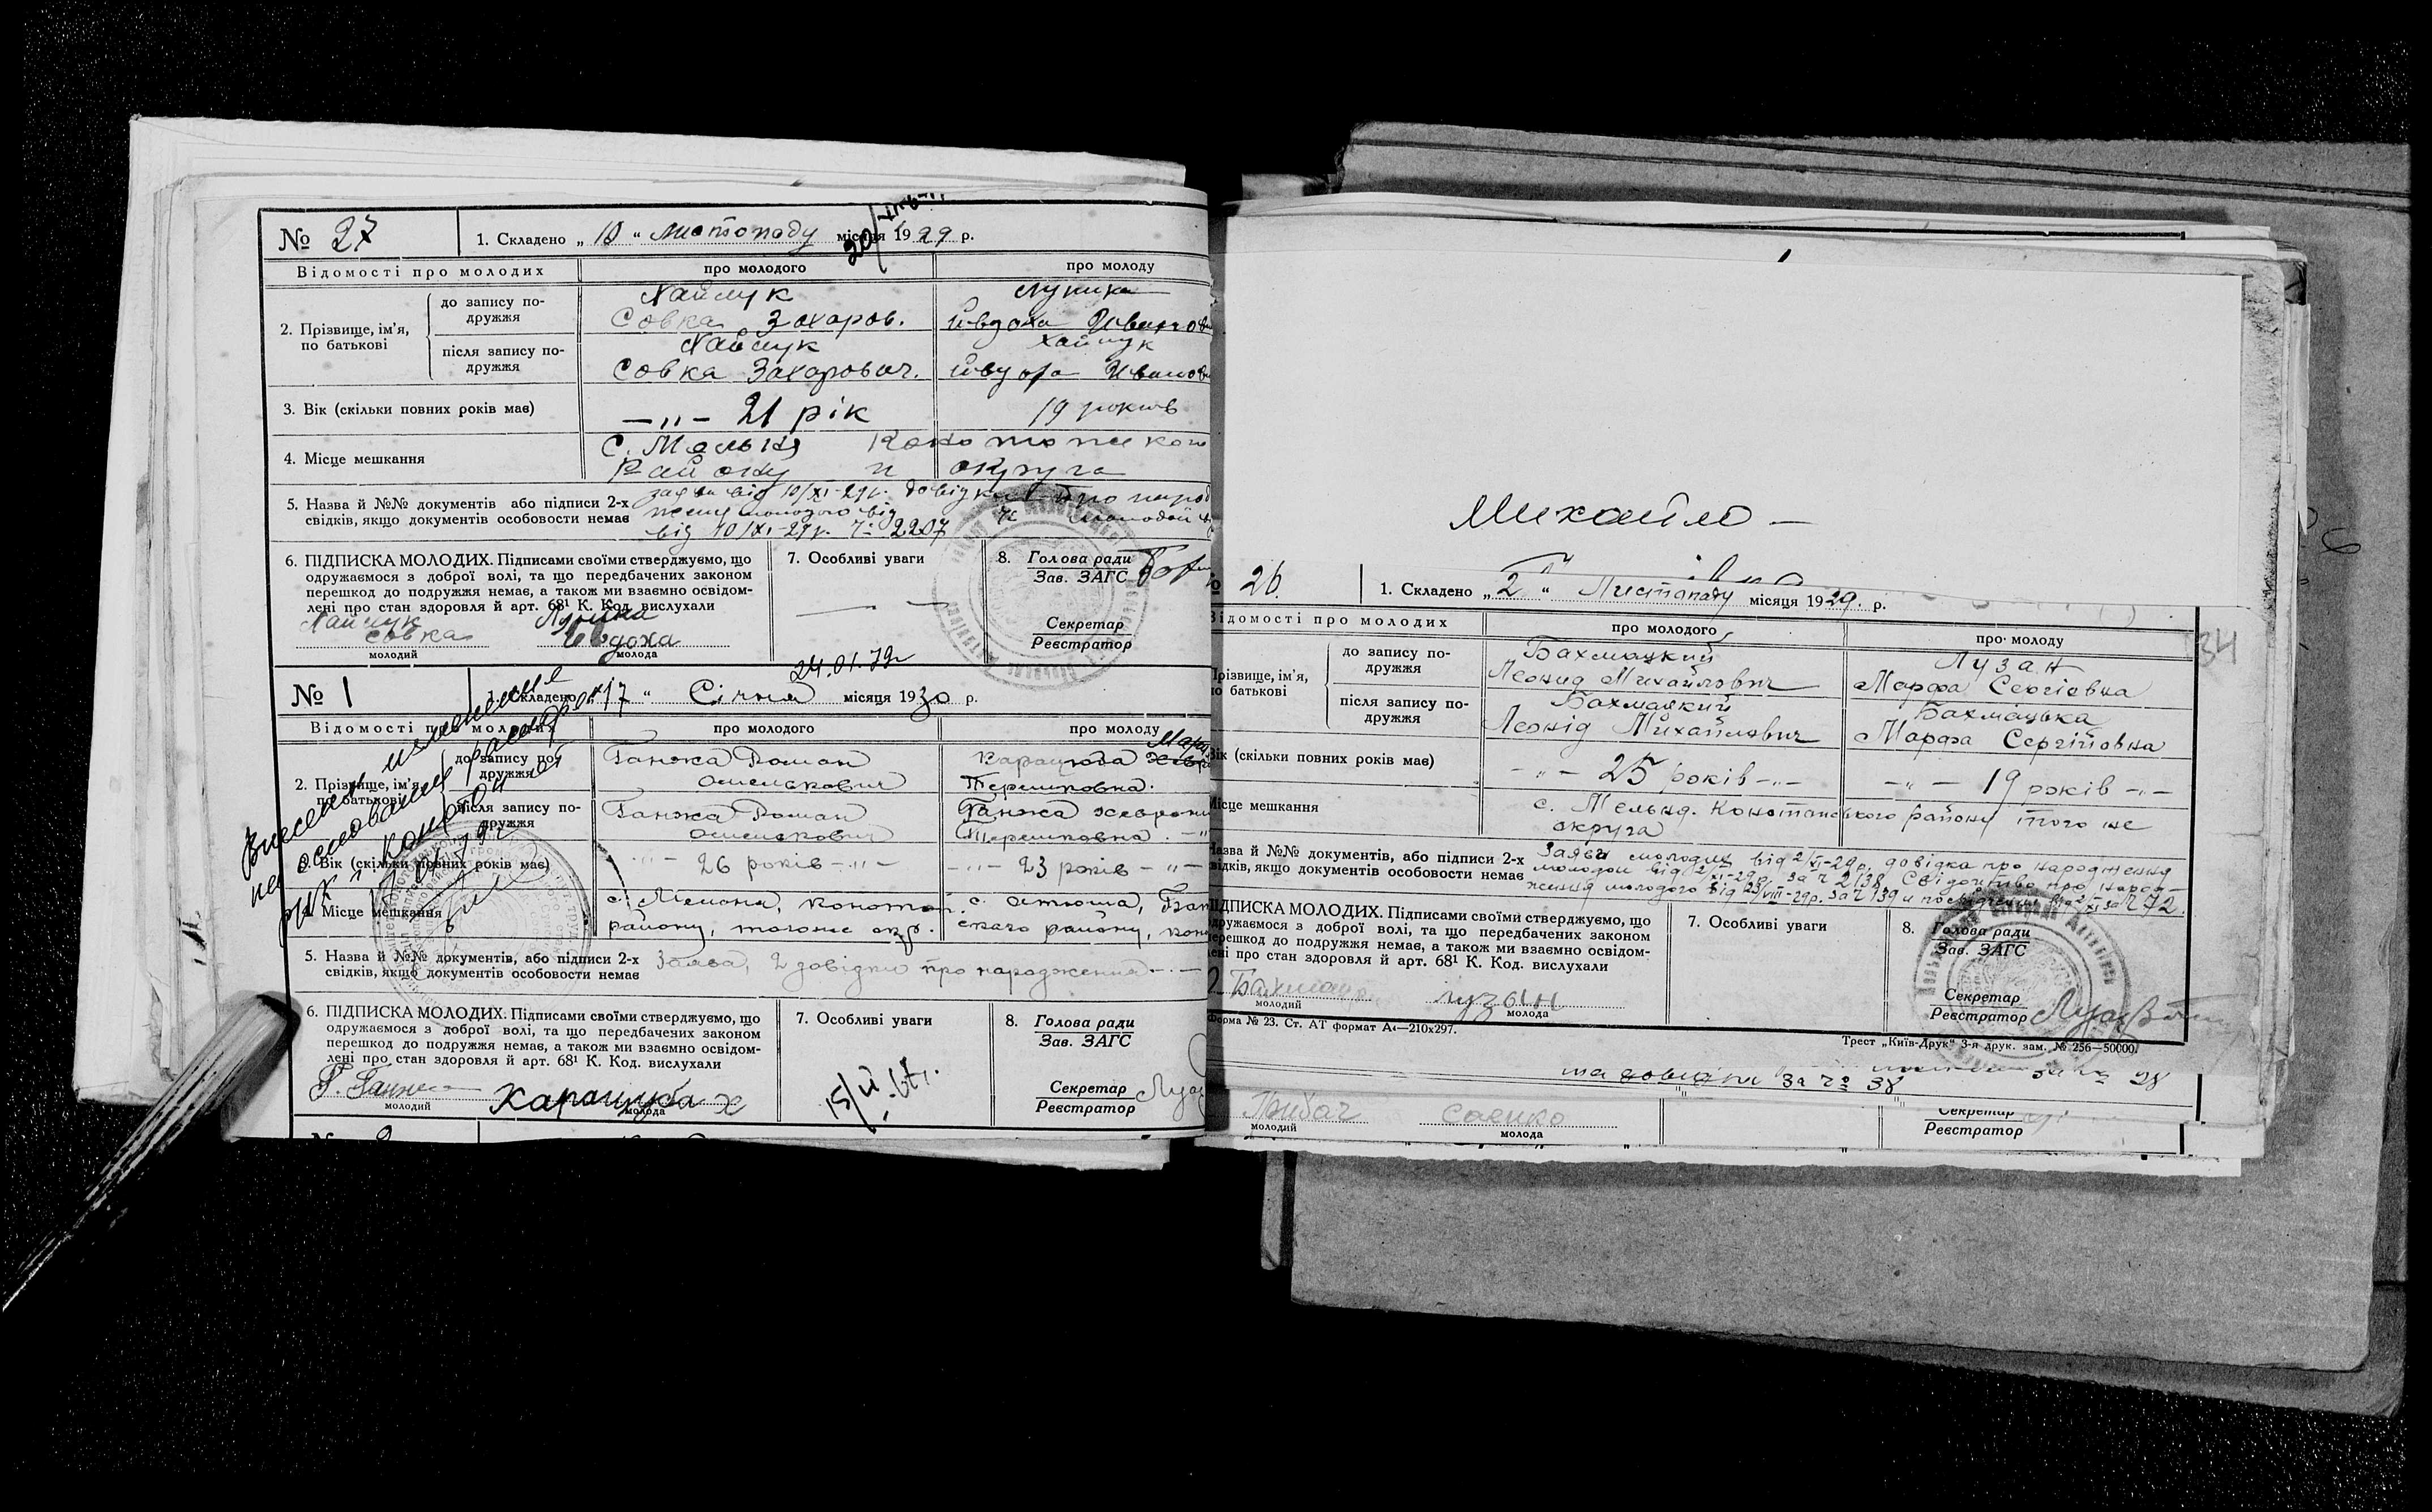 № 27
1. Складено „ 10 “ листопаду місяця 1929 р.
Відомості про молодих
про молодого
про молоду
2. Прізвище, ім'я, по батькові
до запису по-
дружжя
Хайлук
Совка Захаров.
Лупика
Ивдоха
після запису по-
дружжя
Хайлук
Совка Захарович.
Хайлук
3. Вік (скільки повних років має)
— „ — 21 рік
19 років
4. Місце мешкання
С. Мельня Конотопського
Району и округа
5. Назва й №№ документів або підписи 2-х
свідків, якщо документів особовости немає
від 10/XI-29р.
від 10/XI-29р. 2207
6. ПІДПИСКА МОЛОДИХ. Підписами своїми стверджуємо, що
одружаємося з доброї волі, та що передбачених законом
перешкод до подружжя немає, а також ми взаємно освідом-
лені про стан здоровля й арт. 68¹ К. Код. вислухали
Хайлук
Совка
молодий
Евдоха
молода
7. Особливі уваги
8. Голова ради
Зав. ЗАГС
Секретар
Реєстратор
24.01.79г
№ 1
1. Складено „ 17 “ Січня місяця 1930 р.
Відомості про молодих
про молодого
про молоду
2. Прізвище, ім'я,
по батькові
до запису по-
дружжя
Ганжа Роман
Омелькович
Терешковна.
після запису по-
дружжя
Ганжа Роман
Омелькович
Ганжа
Терешковна. — „
3. Вік (скільки повних років має)
— „ — 26 років — „ —
— „ — 23 років — „ —
4. Місце мешкання
с. Мельня, Конотоп.
району, тогож окр.
с. Атюша,
ского району,
5. Назва й №№ документів, або підписи 2-х
свідків, якщо документів особовости немає
Заява, 2 довідки про народження —
6. ПІДПИСКА МОЛОДИХ. Підписами своїми стверджуємо, що
одружаємося з доброї волі, та що передбачених законом
перешкод до подружжя немає, а також ми взаємно освідом-
лені про стан здоровля й арт. 68¹ К. Код. вислухали
Р. Ганжа
молодий
Карацюба Х
молода
7. Особливі уваги
8. Голова ради
Зав. ЗАГС
Секретар
Реєстратор
Михайло —
26.
1. Складено „ 2 “ Листопаду місяця 1929. р.
Відомості про молодих
про молодого
про молоду
Прізвище, ім'я,
по батькові
до запису по-
дружжя
Бахмацкий
Леонид Михайлович
Лузан
Марфа Сергієвна
після запису по-
дружжя
Бахмацкий
Леонід Михайлович
Бахмацька
Марфа Сергійовна
Вік (скільки повних років має)
— „ — 25 років — „ —
— „ — 19 років — „ —
Місце мешкання
с. Мельня. Конотопського району того же
округа
Назва й №№ документів, або підписи 2-х
свідків, якщо документів особовости немає
Заява молодих від 2/XI-29р, довідка про народження
молодои від 2/XI-29р. за № 2138, Свідоцтво про народ-
ження молодого від 23/VIII-29р. за № 139 и посвідчення від 2/XI за № 72.
ПІДПИСКА МОЛОДИХ. Підписами своїми стверджуємо, що
одружаємося з доброї волі, та що передбачених законом
перешкод до подружжя немає, а також ми взаємно освідом-
лені про стан здоровля й арт. 68¹ К. Код. вислухали
молодий
Лузан
молода
7. Особливі уваги
8. Голова ради
Зав. ЗАГС
Секретар
Реєстратор
34
Форма № 23. Ст. АТ формат А4—210х297.
Трест „Київ-Друк“ 3-я друк. зам. № 256—50000.
та довідки за № 38
28
Грибач
молодий
Саенко
молода
Секретар
Реєстратор